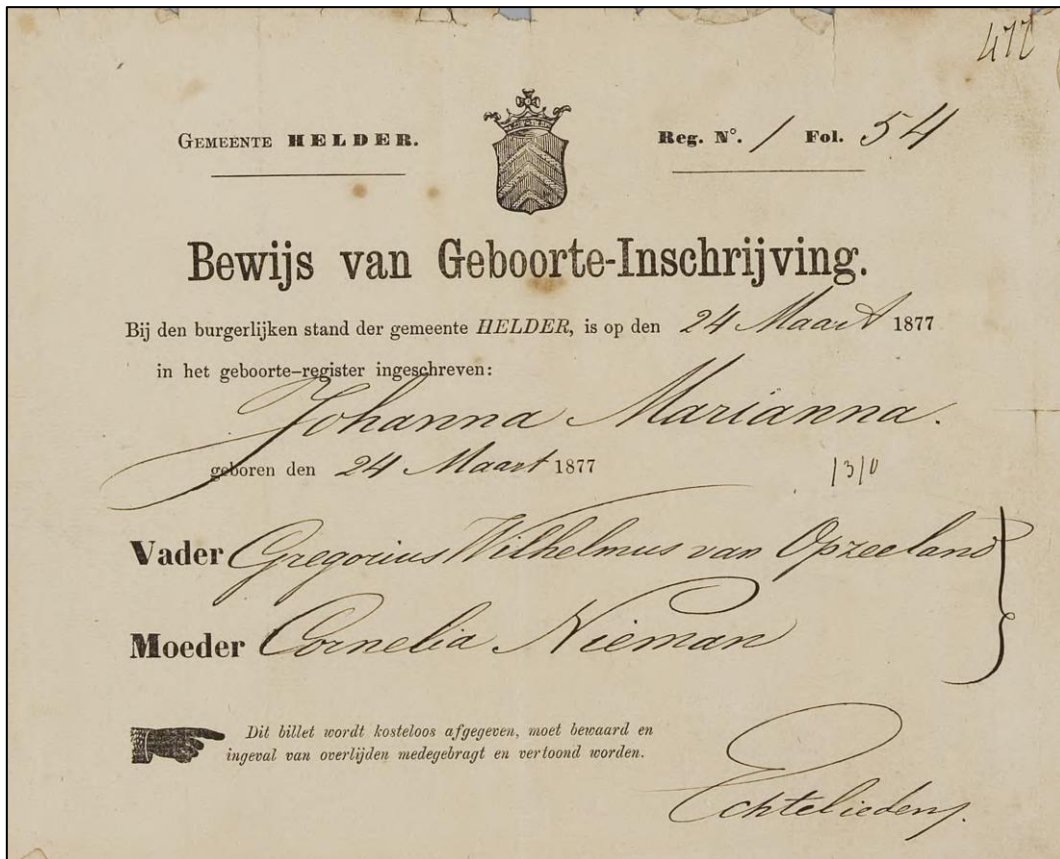 477
GEMEENTE HELDER.
Reg. N°. 1 Fol. 54
Bewijs van Geboorte-Inschrijving.
Bij den burgerlijken stand der gemeente HELDER, is op den 24 Maart 1877
in het geboorte-register ingeschreven:
Johanna Marianna.
geboren den 24 Maart 1877
Vader Gregorius Wilhelmus van Opzeeland
Moeder Cornelia Nieman
Dit billet wordt kosteloos afgegeven, moet bewaard en
ingeval van overlijden medegebragt en vertoond worden.
Echtelieden